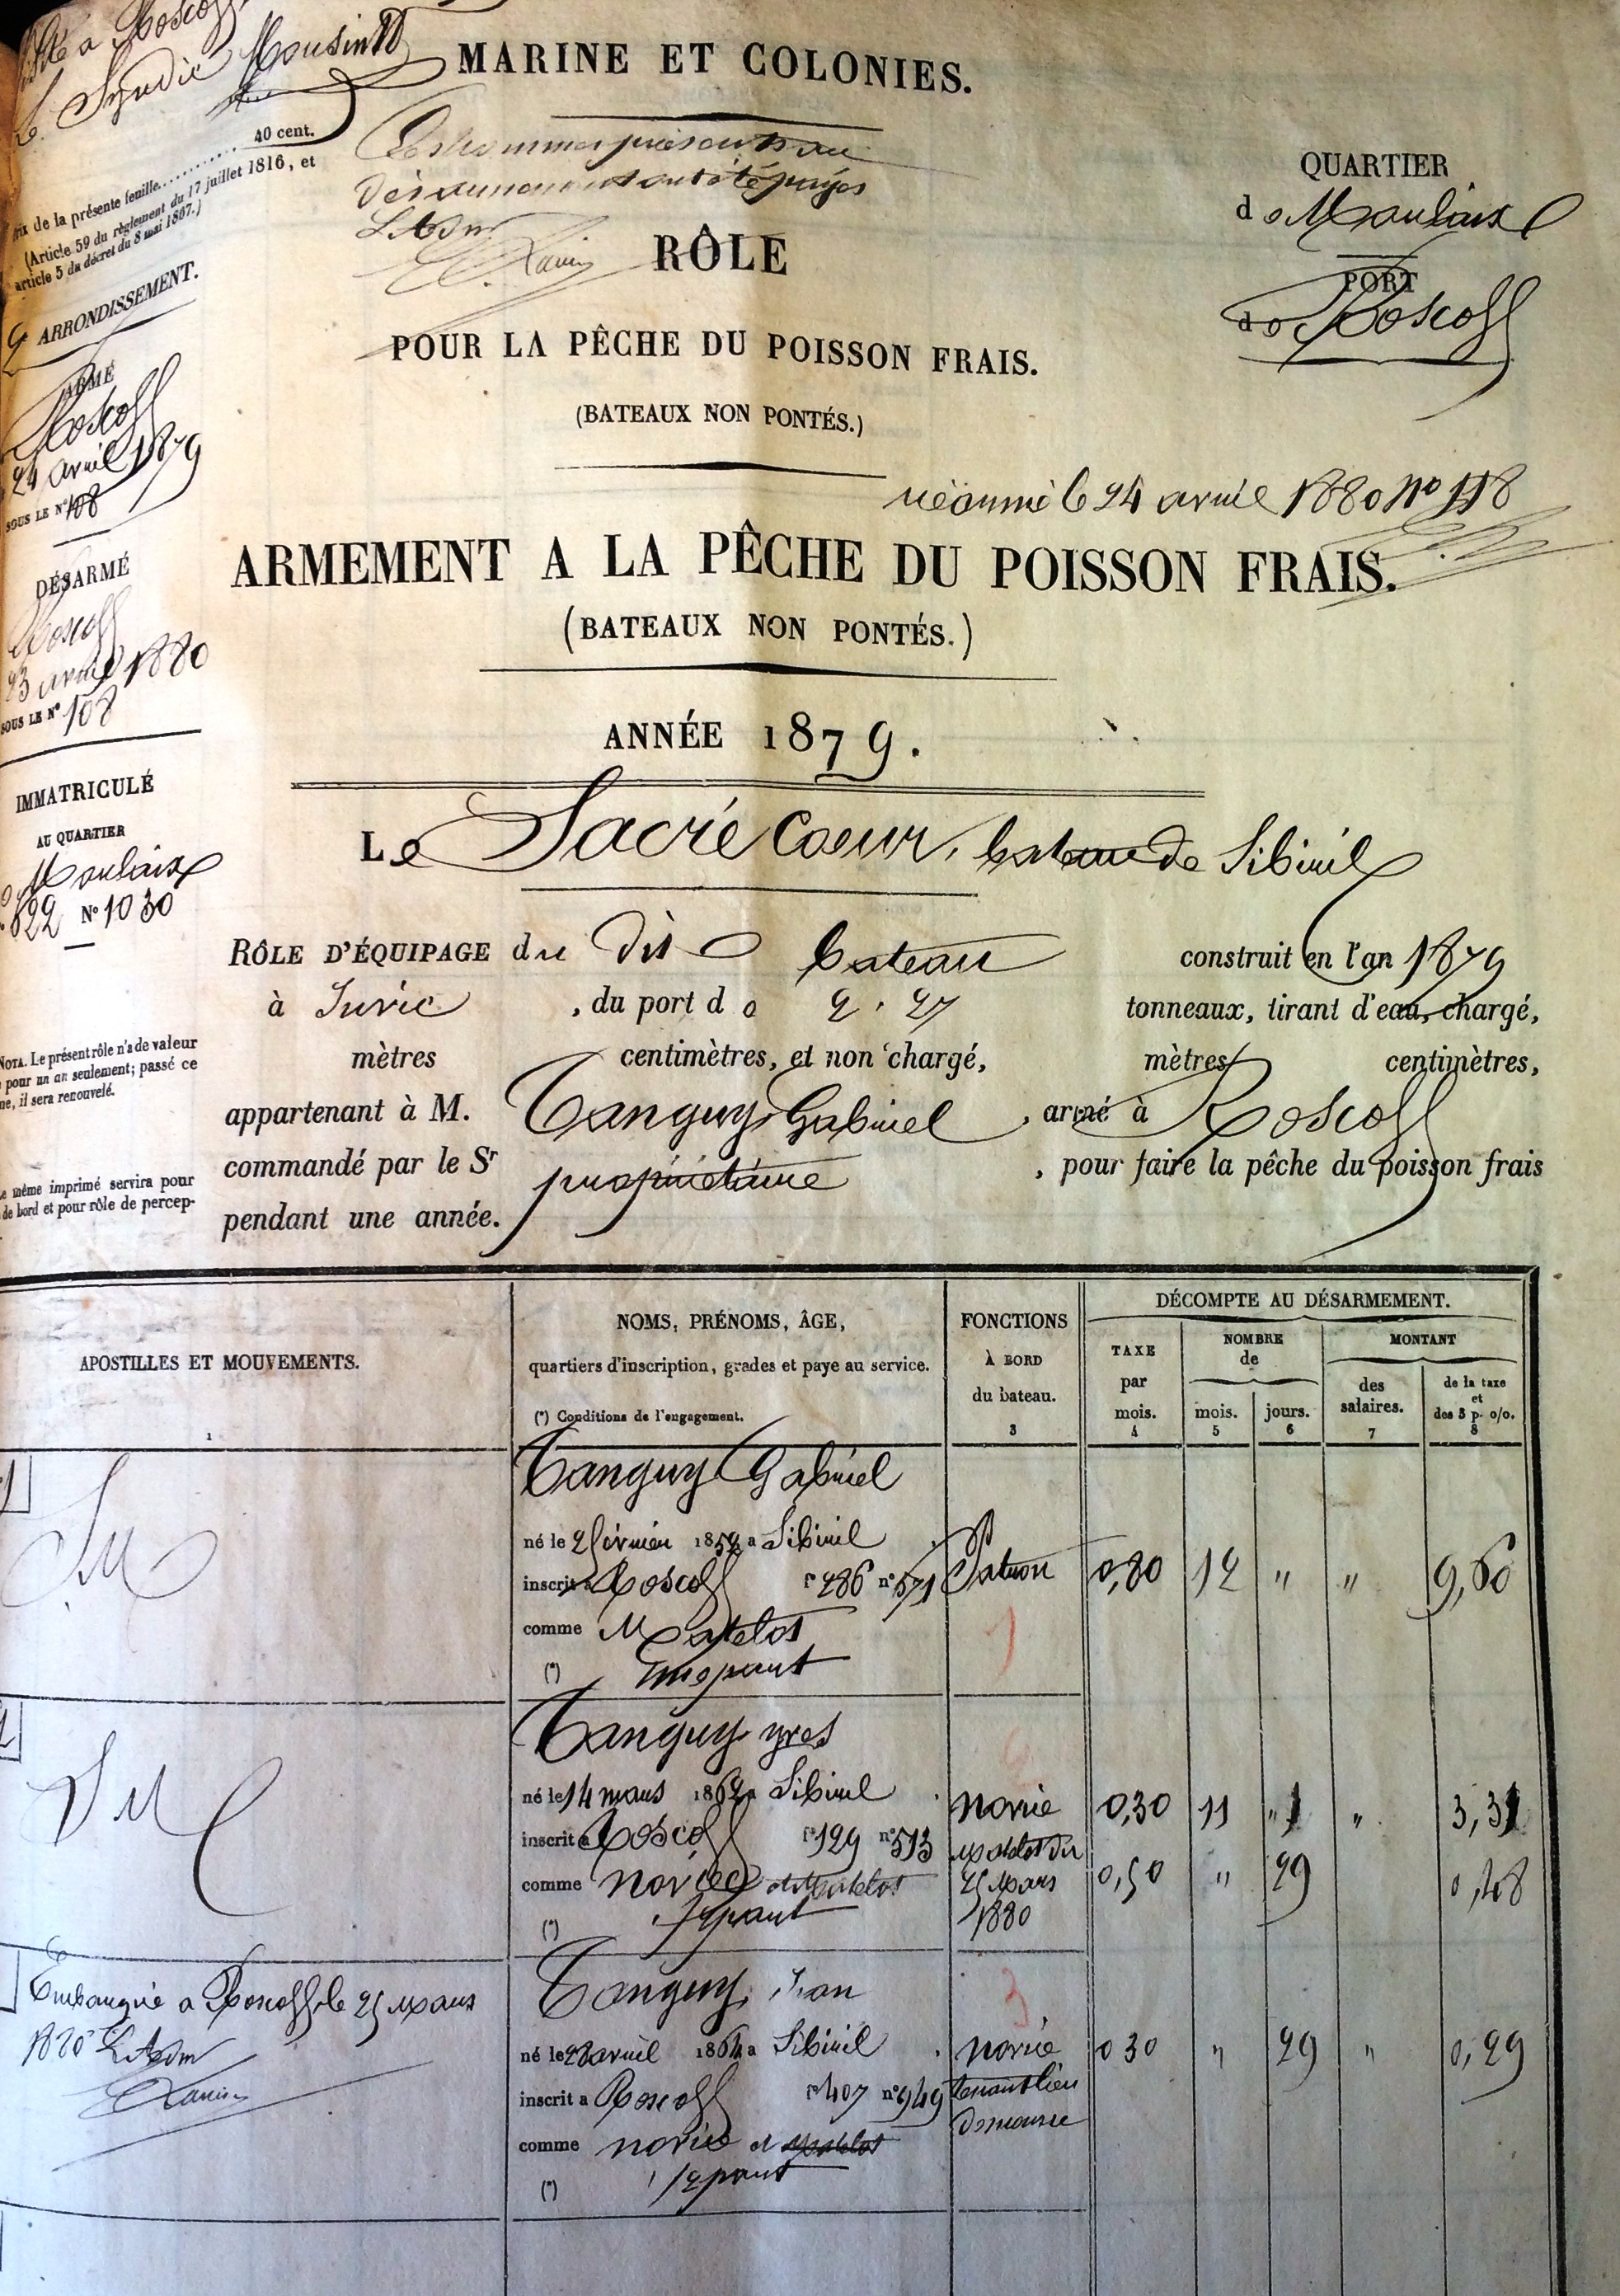 à Roscoff
Le Syndic
MARINE ET COLONIES.
40 cent.
de la présente feuille
(Article 59 du règlement du 17 juillet 1816, et
article 5 du décret du 8 mai 1867.)
Les hommes présents au
désarmement ont été payés
L'Adm
QUARTIER
de Morlaix
PORT
de Roscoff
RÔLE
POUR LA PÊCHE DU POISSON FRAIS.
(BATEAUX NON PONTÉS.)
2 ARRONDISSEMENT.
ARMÉ
Roscoff
24 avril 1879
SOUS LE N° 108
réarmé le 24 avril 1880 No 118
ARMEMENT A LA PÊCHE DU POISSON FRAIS.
(BATEAUX NON PONTÉS.)
DÉSARMÉ
Roscoff
23 avril 1880
SOUS LE N° 108
ANNÉE 1879.
IMMATRICULÉ
AU QUARTIER
Morlaix
N° 1030
Le Sacré Coeur, bateau de Sibiril
RÔLE D'ÉQUIPAGE du dit bateau construit en l'an 1879
à , du port de 2.27 tonneaux, tirant d'eau, chargé,
mètres centimètres, et non chargé, mètres centimètres,
appartenant à M. Tanguy Gabriel , armé à Roscoff
commandé par le Sr propriétaire , pour faire la pêche du poisson frais
pendant une année.
NOTA. Le présent rôle n'a de valeur
pour un an seulement; passé ce
il sera renouvelé.
même imprimé servira pour
de bord et pour rôle de percep-
APOSTILLES ET MOUVEMENTS.
1
NOMS, PRÉNOMS, ÂGE,
quartiers d'inscription, grades et paye au service.
(*) Conditions de l'engagement.
FONCTIONS
À BORD
du bateau.
3
DÉCOMPTE AU DÉSARMEMENT.
TAXE
par
mois.
4
NOMBRE
de
mois.
5
jours.
6
MONTANT
des
salaires.
7
de la taxe
et
des 3 p. o/o.
8
Tanguy Gabriel
né le 2 février 1852 a Sibiril
inscrit a Roscoff f° 286 n° 571 Patron 0,80 12 " " 9,60
comme Matelot
(*) une part
1
2
Tanguy yves
né le 14 mars 1862 a Sibiril novice 0,30 11 " 1 " 3,31
inscrit a Roscoff f° 129 n° 513 matelot du
comme novice et matelot 25 Mars 0,50 " 29 0,48
(*) part 1880
Embarqué a Roscoff le 25 Mars
1880 L'Adm
Tanguy, Jean
3
né le 28 avril 1864 a Sibiril novice 0 30 " 29 " 0,29
inscrit a Roscoff f° 407 n° 949 tenant lieu
comme novice et matelot de mousse
(*) 1/2 part